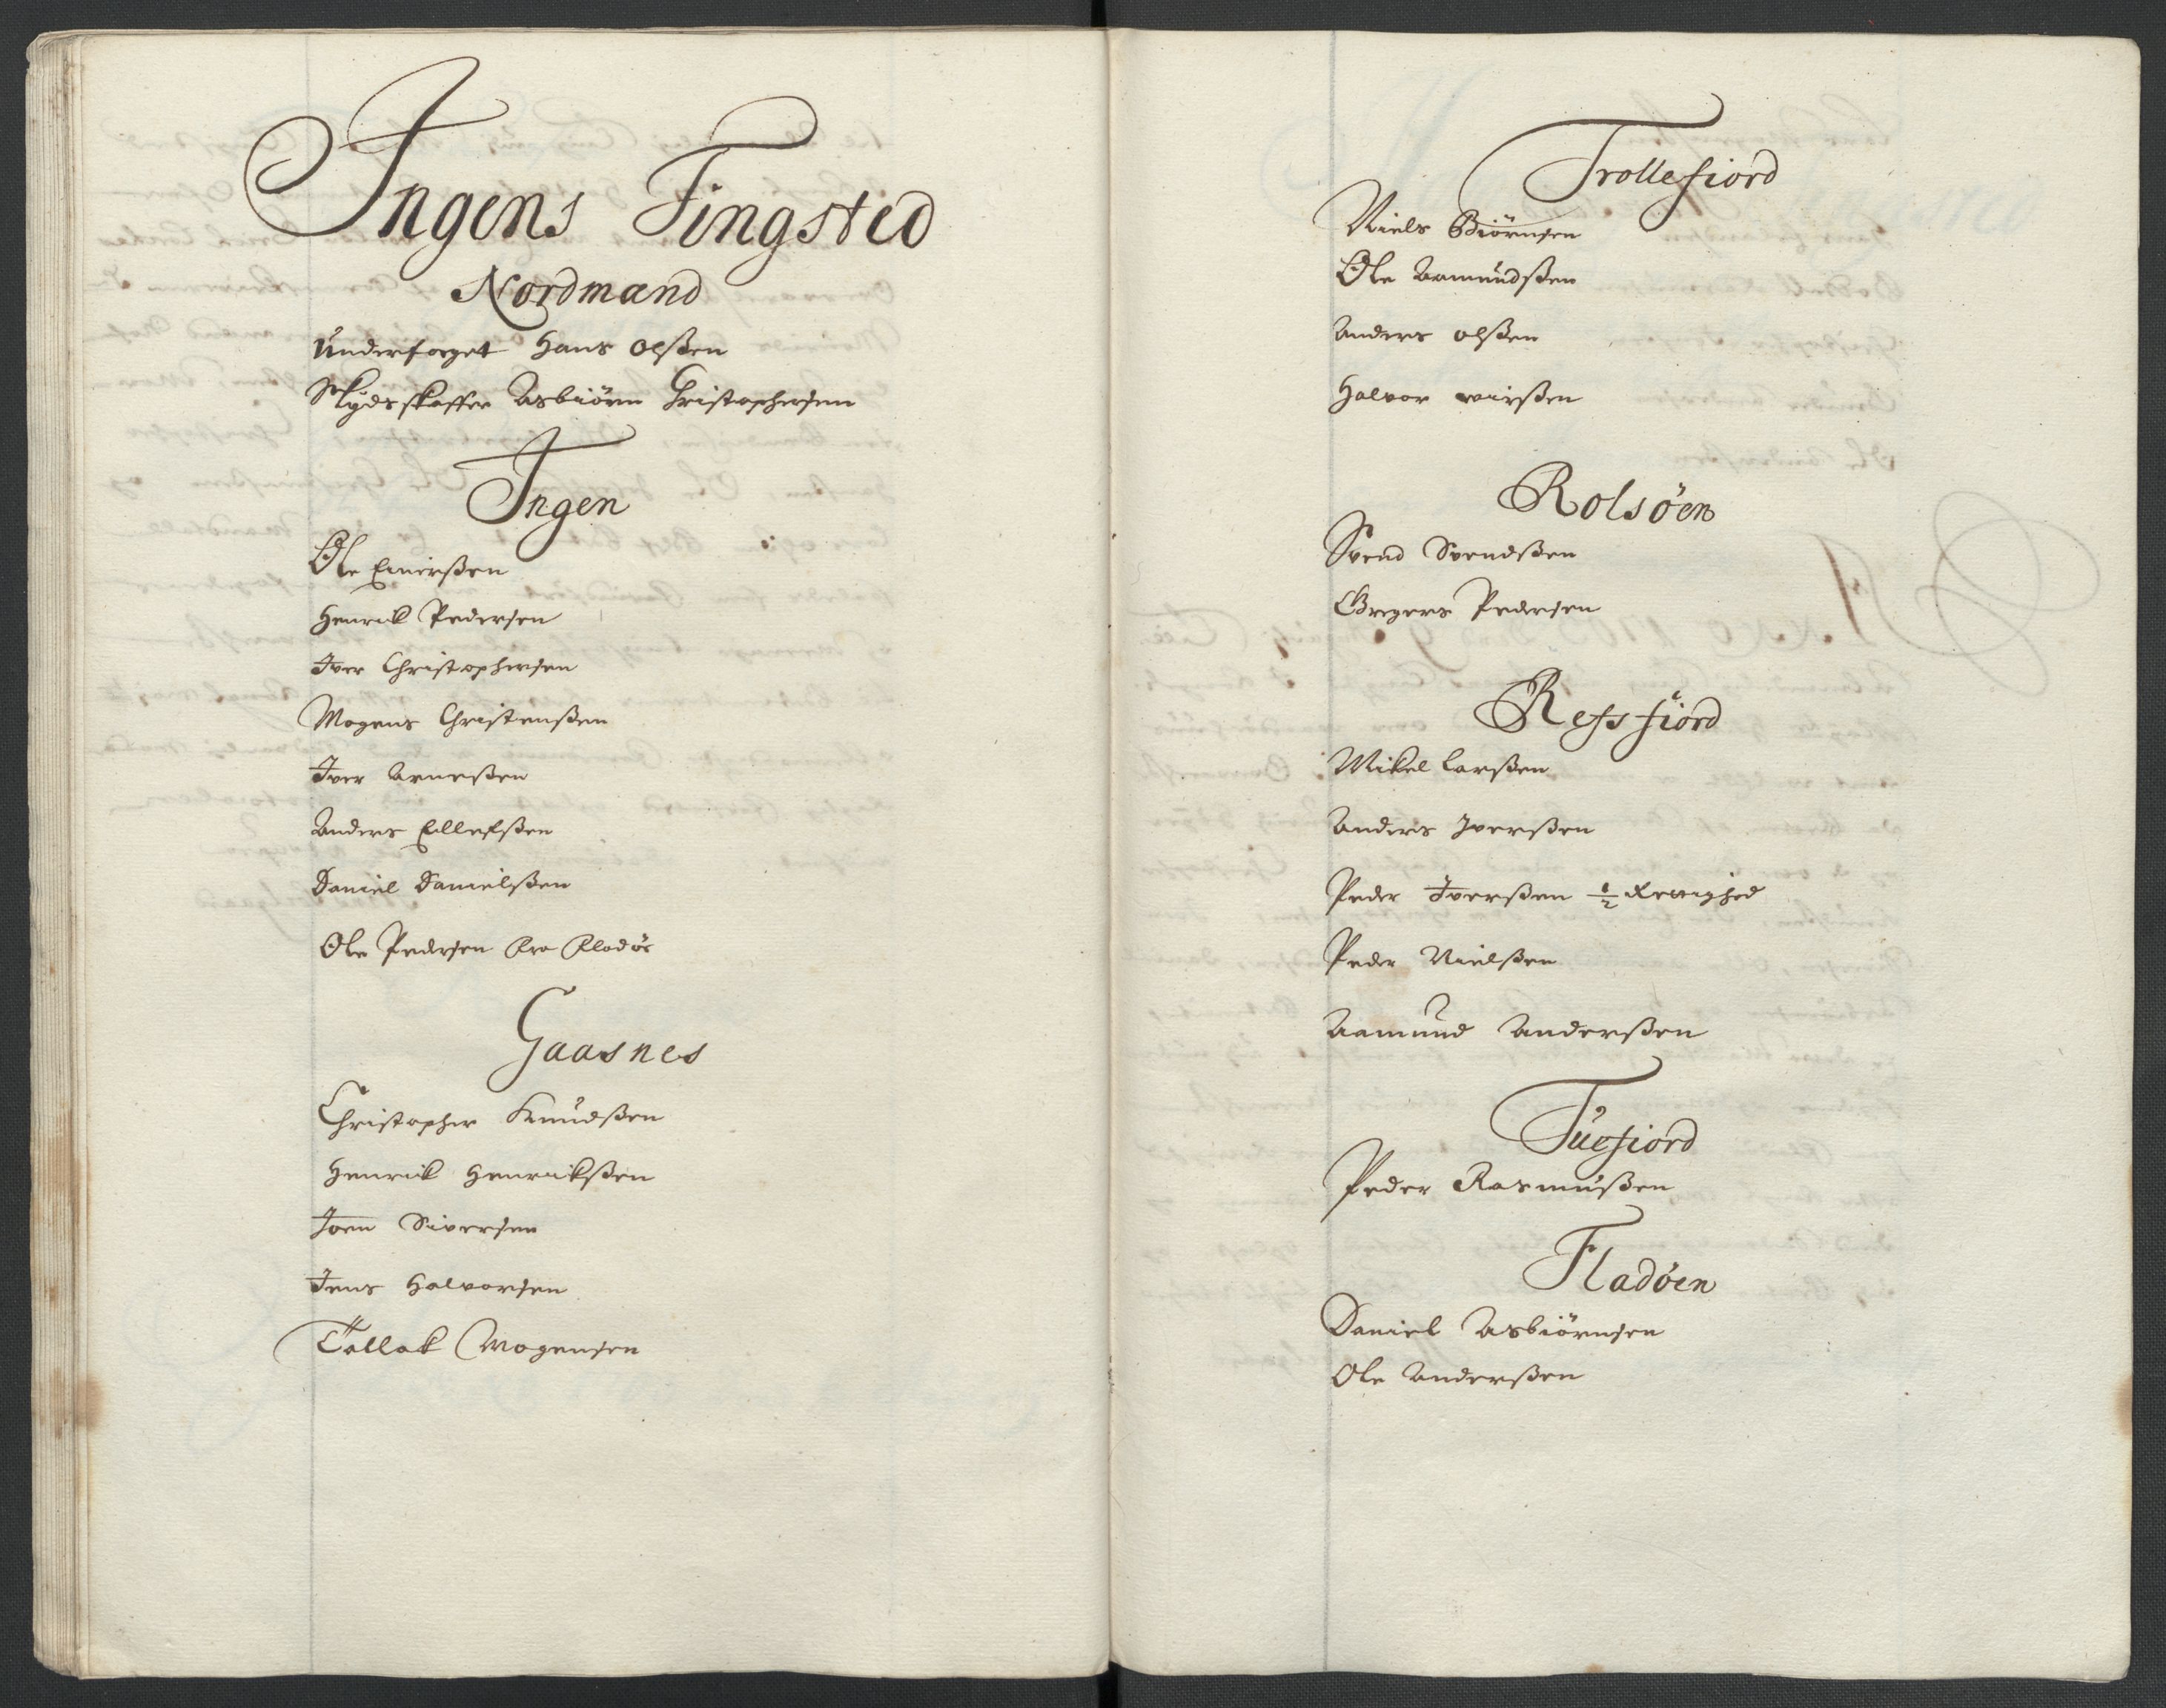 Ingens Tingsted
Nordmænd
Underfoget Hans Olßen
Skydsskaffer Asbiørn Christophersen
Ingen
Ole Einerßen
Henrik Pedersen
Iver Christophersen
Mogens Christenßen
Iver Arneßen
Anders Ellefßen
Daniel Danielßen
Ole Pedersen fra Fladøe
Gaasnes
Christopher Knudßen
Henrik Henrikßen
Joen Siversen
Jens Halvorsen
Tollak Mogensen
Trollefiord
Niels Biørnsen
Ole Aamundßen
Anders Olßen
Halvor
Rolsøen
Svend Svendßen
Gregers Pedersen
Refsfiord
Mikel Larßen
Anders Iverßen
Peder Iverßen ½ Rettighed
Peder Nielßen
Aamund Anderßen
Tuefiord
Peder Rasmußen
Fladøen
Daniel Asbiørnsen
Ole Anderßen